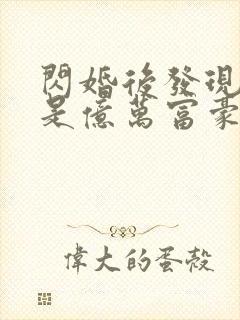 閃婚後發現
是億萬富豪
偉大的蛋殼